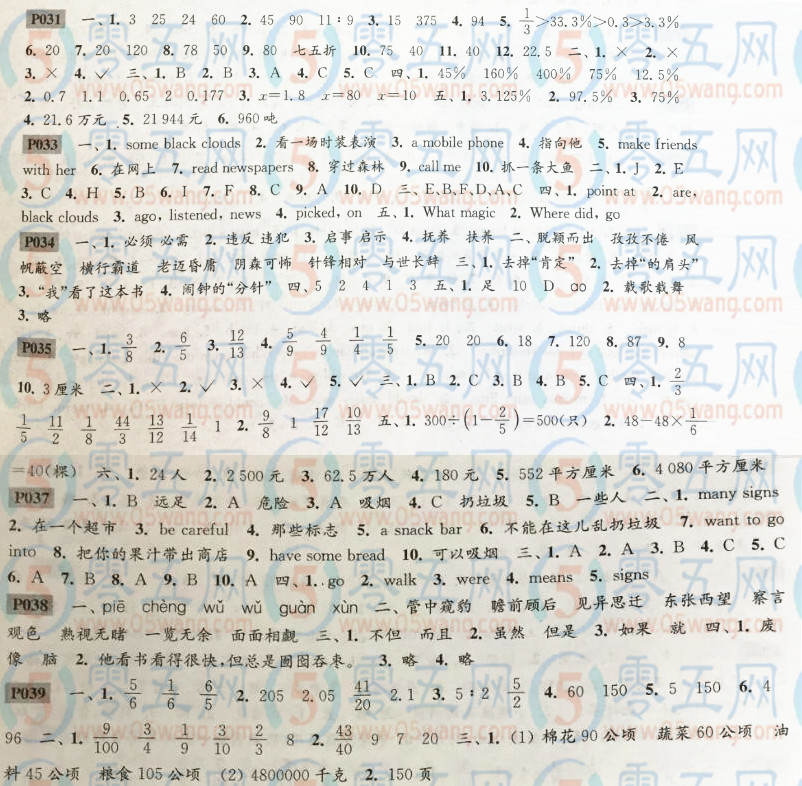 P031 一、1. 3 25 24 60 2. 45 90 11∶9 3. 15 375 4. 94 5. 1/3＞33.3％＞0.3＞3.3％
6. 20 7. 20 120 8. 78 50 9. 80 七五折 10. 75 40 11. 40 12. 22.5 二、1. × 2. ×
3. × 4. ✓ 三、1. B 2. B 3. A 4. C 5. C 四、1. 45％ 160％ 400％ 75％ 12.5％
2. 0.7 1.1 0.65 2 0.177 3. x＝1.8 x＝80 x＝10 五、1. 3.125％ 2. 97.5％ 3. 75％
4. 21.6万元 5. 21 944元 6. 960吨
P033 一、1. some black clouds 2. 看一场时装表演 3. a mobile phone 4. 指向他 5. make friends
with her 6. 在网上 7. read newspapers 8. 穿过森林 9. call me 10. 抓一条大鱼 二、1. J 2. E
3. C 4. H 5. B 6. I 7. F 8. C 9. A 10. D 三、E、B、F、D、A、C 四、1. point at 2. are,
black clouds 3. ago, listened, news 4. picked, on 五、1. What magic 2. Where did, go
P034 一、1. 必须 必需 2. 违反 违犯 3. 启事 启示 4. 抚养 扶养 二、脱颖而出 孜孜不倦 风
帆蔽空 横行霸道 老迈昏庸 阴森可怖 针锋相对 与世长辞 三、1. 去掉“肯定” 2. 去掉“的肩头”
3. “我”看了这本书 4. 闹钟的“分针” 四、5 2 4 1 3 五、1. 足 10 D ao 2. 载歌载舞
3. 略
P035 一、1. 3/8 2. 6/5 3. 12/13 4. 5/9 4/9 1/4 1/5 5. 20 20 6. 18 7. 120 8. 87 9. 8
10. 3厘米 二、1. × 2. ✓ 3. × 4. ✓ 5. ✓ 三、1. B 2. C 3. B 4. B 5. C 四、1. 2/3
1/5 11/2 1/8 44/3 13/12 1/14 1 2. 9/8 1 17/12 10/13 五、1. 300÷(1－2/5)＝500(只) 2. 48－48×1/6
＝40(棵) 六、1. 24人 2. 2 500元 3. 62.5万人 4. 180元 5. 552平方厘米 6. 4 080平方厘米
P037 一、1. B 远足 2. A 危险 3. A 吸烟 4. C 扔垃圾 5. B 一些人 二、1. many signs
2. 在一个超市 3. be careful 4. 那些标志 5. a snack bar 6. 不能在这儿乱扔垃圾 7. want to go
into 8. 把你的果汁带出商店 9. have some bread 10. 可以吸烟 三、1. A 2. A 3. B 4. C 5. C
6. A 7. B 8. A 9. B 10. A 四、1. go 2. walk 3. were 4. means 5. signs
P038 一、piē chèng wǔ wǔ guàn xùn 二、管中窥豹 瞻前顾后 见异思迁 东张西望 察言
观色 熟视无睹 一览无余 面面相觑 三、1. 不但 而且 2. 虽然 但是 3. 如果 就 四、1. 废
像 脑 2. 他看书看得很快，但总是囫囵吞枣。 3. 略 4. 略
P039 一、1. 5/6 1/6 6/5 2. 205 2.05 41/20 2.1 3. 5∶2 5/2 4. 60 150 5. 5 150 6. 4
96 二、1. 9/100 3/4 1/9 3/10 2/3 8 2. 43/40 9 7 20 三、1. (1) 棉花90公顷 蔬菜60公顷 油
料45公顷 粮食105公顷 (2) 4800000千克 2. 150页